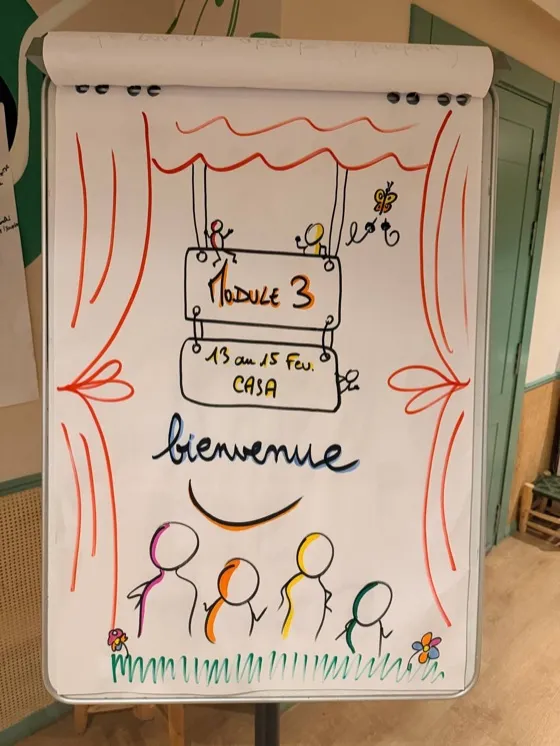 MODULE 3
13 au 15 Fev.
CASA
bienvenue